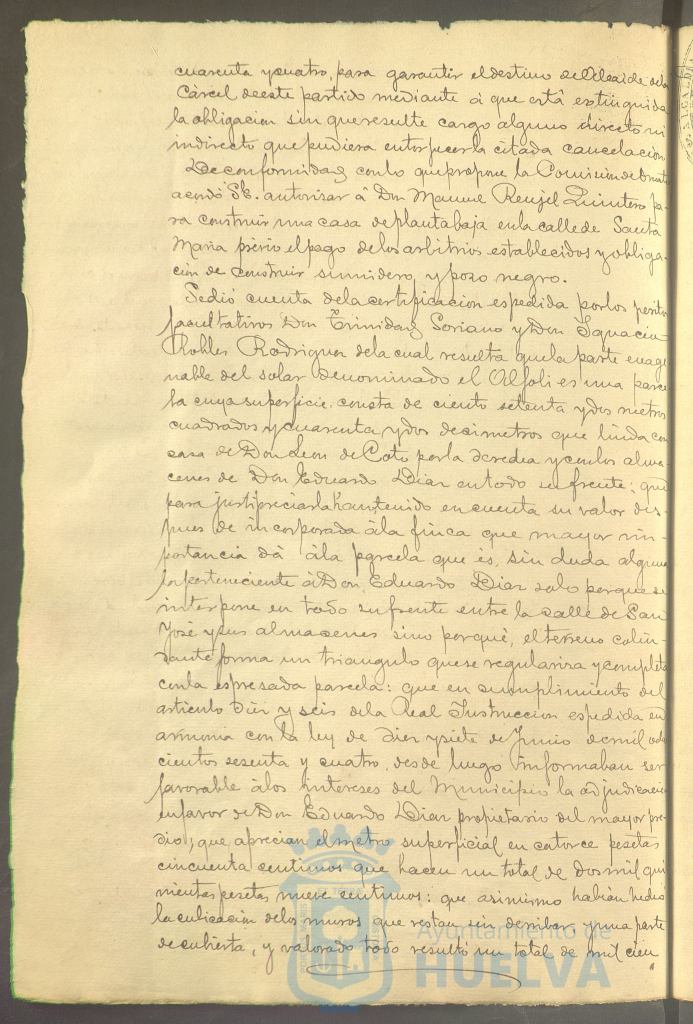 cuarenta y cuatro, para garantir el destino de Alcaide de la
Carcel de este partido mediante á que está estinguida
la obligacion sin que resulte cargo alguno directo ni
indirecto que pudiera entorpecer la citada cancelacion
De conformidad con lo que propone la Comision de Ornato
acordó S.E. autorizar á Don Manuel Renjel Quintero pa-
ra construir una casa de planta baja en la calle de Santa
Maria prévio el pago de los arbitrios establecidos y obliga-
cion de construir sumidero y pozo negro.
Se dió cuenta de la certificacion espedida por los peritos
facultativos Don Trinidad Soriano y Don Ignacio
Robles Rodriguez de la cual resulta que la parte enage
nable del solar denominado el Alfoli es una parce
la cuya superficie consta de ciento setenta y dos metros
cuadrados y cuarenta y dos decimetros que linda con
casa de Don Leon de Coto por la derecha y con los alma-
cenes de Don Eduardo Diaz en todo su frente; que
para justipreciarla han tenido en cuenta su valor des-
pues de incorporada á la finca que mayor im-
portancia dá á la parcela que es, sin duda alguna
la perteneciente á Don Eduardo Diaz solo porque se
interpone en todo su frente entre la calle de San
José y sus almacenes sino porqué, el terreno colin-
dante forma un triangulo que se regulariza y completa
con la espresada parcela: que en cumplimiento del
articulo diez y seis de la Real Instruccion espedida en
armonia con la ley de diez y siete de Junio de mil ocho
cientos sesenta y cuatro, desde luego informaban ser
favorable á los intereses del Municipio la adjudicacion
en favor de Don Eduardo Diaz propietario del mayor pre-
dio; que aprecian el metro superficial en catorce pesetas
cincuenta centimos que hacen un total de dos mil qui
nientas pesetas nueve centimos: que asimismo habian hecho
la cubicacion de los muros que restan sin derribar y una parte
de cubierta, y valorado todo resultó un total de mil cien
Ayuntamiento de
HUELVA